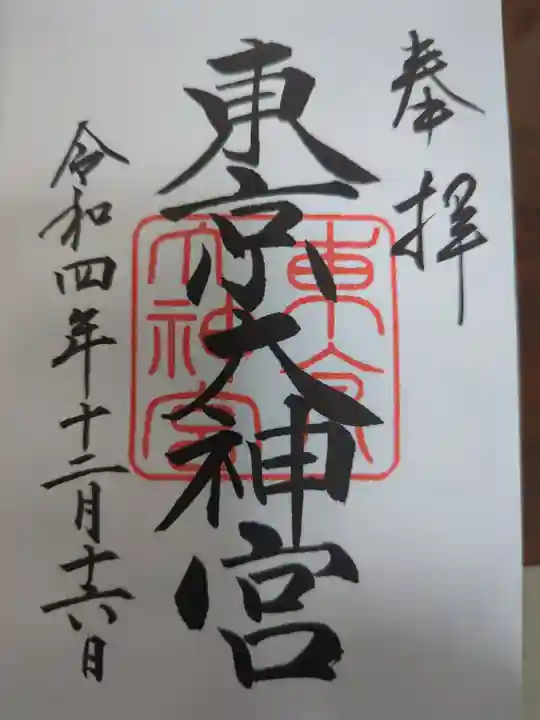 奉拝
東京大神宮
東京
大神宮
令和四年十二月十六日